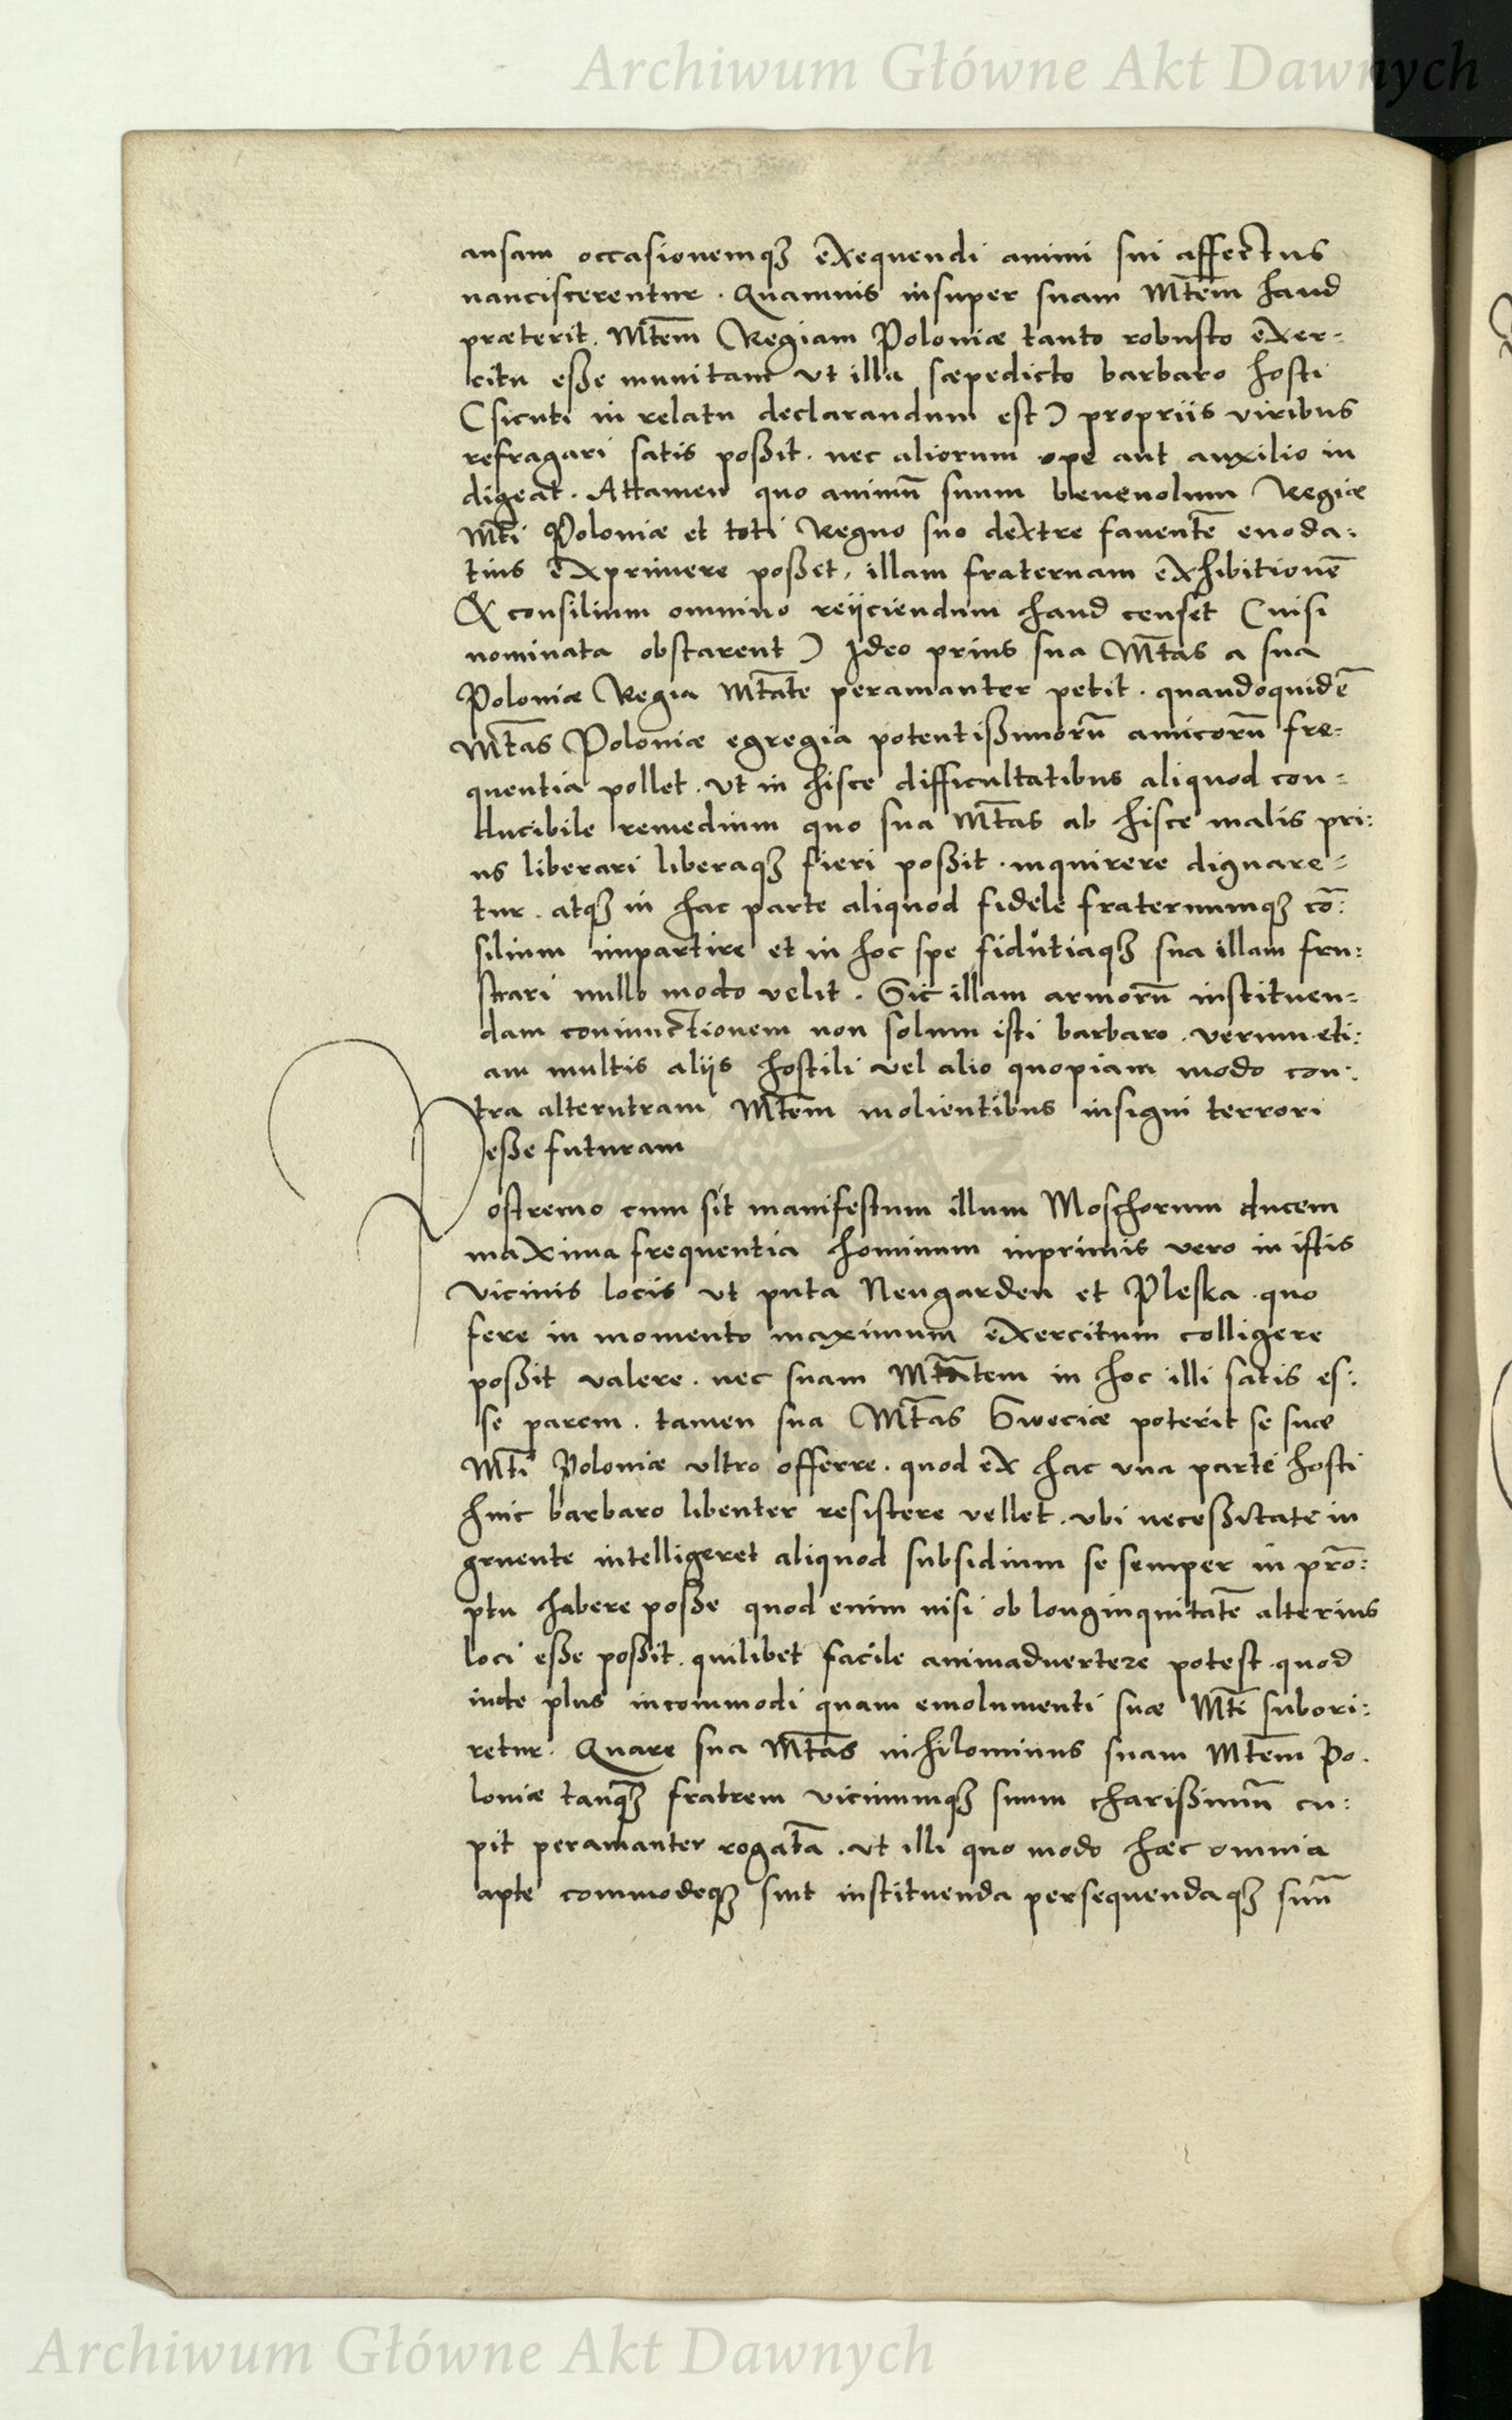 Archiwum Główne Akt Dawnych
ansam occasionemqȝ exequendi animi sui affectus
nanciscerentur. Quamuis insuper suam Mt̄em haud
præterit. Mt̄em Regiam Poloniæ tanto robusto exer-
citu eße munitam vt illa sæpedicto barbaro hosti
(sicuti in relatu declarandum est) propriis viribus
refragari satis poßit. nec aliorum ope aut auxilio in
digeat. Attamen quo animū suum beneuolum Regiæ
Mt̄i Poloniæ et toti Regno suo dextre fauentē enoda:
tius exprimere poßet, illam fraternam exhibitionē
& consilium omnino reijciendum haud censet (nisi
nominata obstarent) Ideo prius sua Mt̄as a sua
Poloniæ Regia Mt̄ate peramanter petit. quandoquidē
Mt̄as Poloniæ egregia potentißimorū amicorū fre-
quentia pollet. vt in hisce difficultatibus aliquod con-
ducibile remedium quo sua Mt̄as ab hisce malis pri:
us liberari liberaqȝ fieri poßit. inquirere dignare-
tur. atqȝ in hac parte aliquod fidele fraternumqȝ cō:
silium impartire et in hoc spe fidutiaqȝ sua illam fru:
strari nullo modo velit. Sic illam armorū instituen-
dam coniunctionem non solum isti barbaro. verum eti:
am multis aliis hostili vel alio quopiam modo con:
tra alterutram Mt̄em molientibus insigni terrori
eße futuram
Postremo cum sit manifestum illum Moschorum ducem
maxima frequentia hominum inprimis vero in istis
vicinis locis vt puta Neugarden et Pleska. quo
fere in momento maximum exercitum colligere
poßit valere. nec suam Mt̄atem in hoc illi satis es:
se parem. tamen sua Mt̄as Sweciæ poterit se suæ
Mt̄i Poloniæ vltro offerre. quod ex hac vna parte hosti
huic barbaro libenter resistere vellet. vbi neceßitate in
gruente intelligeret aliquod subsidium se semper in prō:
ptu habere poße quod enim nisi ob longinquitatē alterius
loci eße poßit. quilibet facile animaduertere potest. quod
inde plus incommodi quam emolumenti suæ Mt̄i subori:
retur. Quare sua Mt̄as nihilominus suam Mt̄em Po.
loniæ tanqȝ fratrem vicinumqȝ suum charißimū cu:
pit peramanter rogatā. vt illi quo modo hæc omnia
apte commodeqȝ sint instituenda persequendaqȝ suū
Archiwum Główne Akt Dawnych